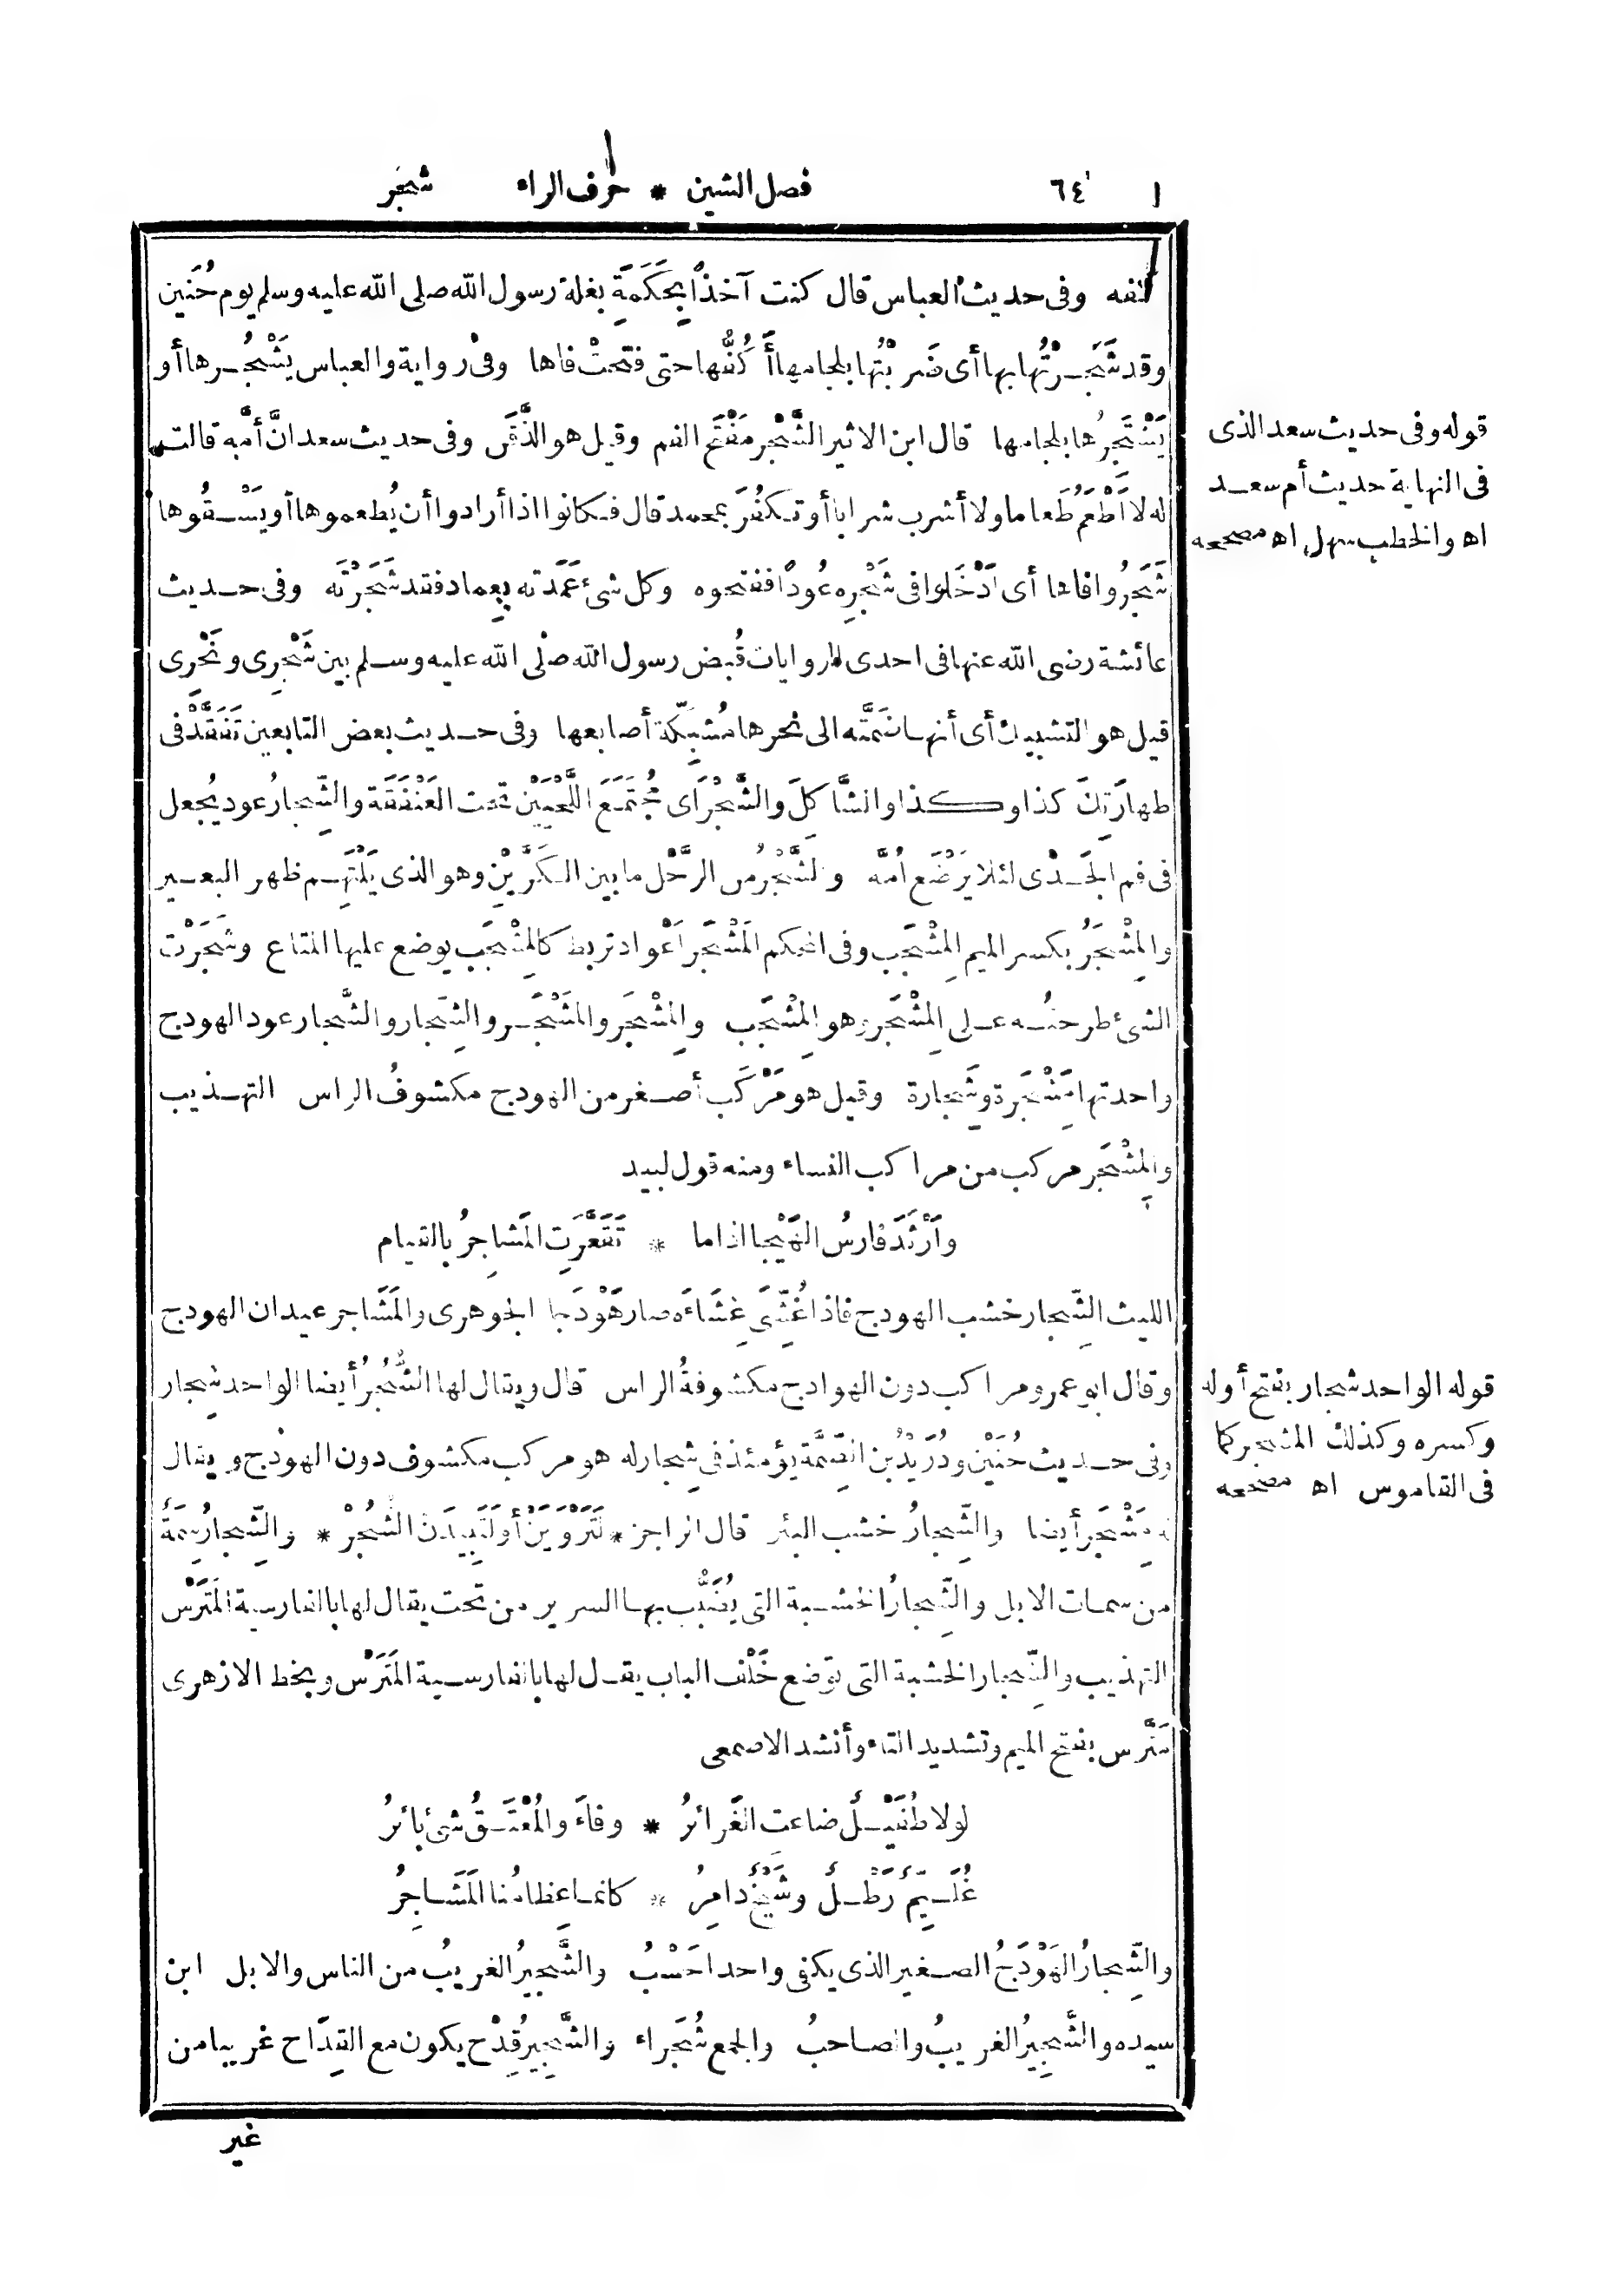 ٦٤ فصل الشين * حرف الراء شجر
كنفه وفى حديث العباس قال كنت آخذًا بِحَكَمَةِ بغلة رسول الله صلى الله عليه وسلم يوم حُنَين
وقد شَجَرْتُها بها أى ضَرَبْتُها بلجامها أَكُفُّها حتى فتحتْ فاها وفى رواية والعباس يَشْجُرها أو
يَشْتَجِرُها بلجامها قال ابن الاثير الشَّجْر مَفْتَح الفم وقيل هو الذَّقَن وفى حديث سعد انَّ أُمَّه قالت
له لا أَطْعَمُ طَعاما ولا أشرب شرابا أو تكفُرَ بمحمد قال فكانوا اذا أرادوا أن يُطعموها أو يَسْقُوها
شَجَرُوا فاها أى أَدْخَلوا فى شَجْرِه عُودًا ففتحوه وكل شئ عَمَدْته بِعِماد فقد شَجَرْتَه وفى حديث
عائشة رضى الله عنها فى احدى الروايات قُبض رسول الله صلى الله عليه وسلم بين شَجْرِى ونَحْرِى
قيل هو التشبيك أى أنها ضَمَّته الى نحرها مُشَبِّكة أصابعها وفى حديث بعض التابعين تَفَقَّدْ فى
طهارَتِكَ كذا وكذا والشَّاكِلَ والشَّجْرَ أى مُجْتَمَعَ اللَّحْيَيْنِ تحت العَنْفَقَة والشِّجارُ عود يُجعل
فى فم الجَدْى لئلا يَرْضَع أُمَّه والشَّجْرُ من الرَّحْل ما بين الكَرَّيْنِ وهو الذى يَلْتَهِم ظهر البعير
والمِشْجَرُ بكسر الميم المِشْجَب وفى المحكم المَشْجَر أَعْواد تربط كالمِشْجَب يوضع عليها المتاع وشَجَرْت
الشئ طرحتُه على المِشْجَر وهو المِشْجَب والمِشْجَر والمَشْجَر والشِجار والشَّجار عود الهودج
واحدتها مِشْجَرة وشِجَارة وقيل هو مَرْكَب أصغر من الهودج مكشوفُ الراس التهذيب
والمِشْجَر مركب من مراكب النساء ومنه قول لبيد
وأَرْثَدَ فارسُ الهَيْجا اذا ما * تَقَعَّرَتِ المَشاجِرُ بالقيام
الليث الشِّجار خشب الهودج فاذا غُشِّىَ غِشَاءَه صار هَوْدَجا الجوهرى والمَشَاجر عيدان الهودج
وقال ابو عمرو مراكب دون الهوادج مكشوفةُ الراس قال ويقال لها الشُّجُرُ أيضا الواحد شِجار
وفى حديث حُنَيْن ودُرَيْدُ بن الصِّمَّة يومئذ فى شِجار له هو مركب مكشوف دون الهودج ويقال
له مِشْجَر أيضا والشِّجارُ خشب البئر قال الراجز * لَتَرْوَيَنْ أو لَتَبِيدَنَّ الشُّجُرْ * والشِّجارُ سِمَةٌ
من سمات الابل والشِّجارُ الخشبة التى يُضَبَّب بها السرير من تحت يقال لها بالفارسية المَتَرْس
التهذيب والشِّجار الخشبة التى توضع خَلْف الباب يقال لها بالفارسية المَتَرْس وبخط الازهرى
مَتَّرس بفتح الميم وتشديد التاء وأنشد الاصمعى
لولا طُفَيْلٌ ضاعت الغَرائرُ * وفاءَ والمُعْتَقُ شئ بائرُ
غُلَيِّمٌ رَطْلٌ وشَيْخٌ دامِرُ * كانما عِظامُنا المَشَاجِرُ
والشِّجارُ الهَوْدَجُ الصغير الذى يكفى واحدا حَسْبُ والشَّجيرُ الغريبُ من الناس والابل ابن
سيده والشَّجِيرُ الغريبُ والصاحبُ والجمع شُجَراء والشَّجِيرُ قِدْح يكون مع القِدَاح غريبا من
غير
قوله وفى حديث سعد الذى
فى النهاية حديث أم سعد
اه والخطب سهل اه مصححه
قوله الواحد شجار بفتح أوله
وكسره وكذلك المشجر كما
فى القاموس اه مصححه